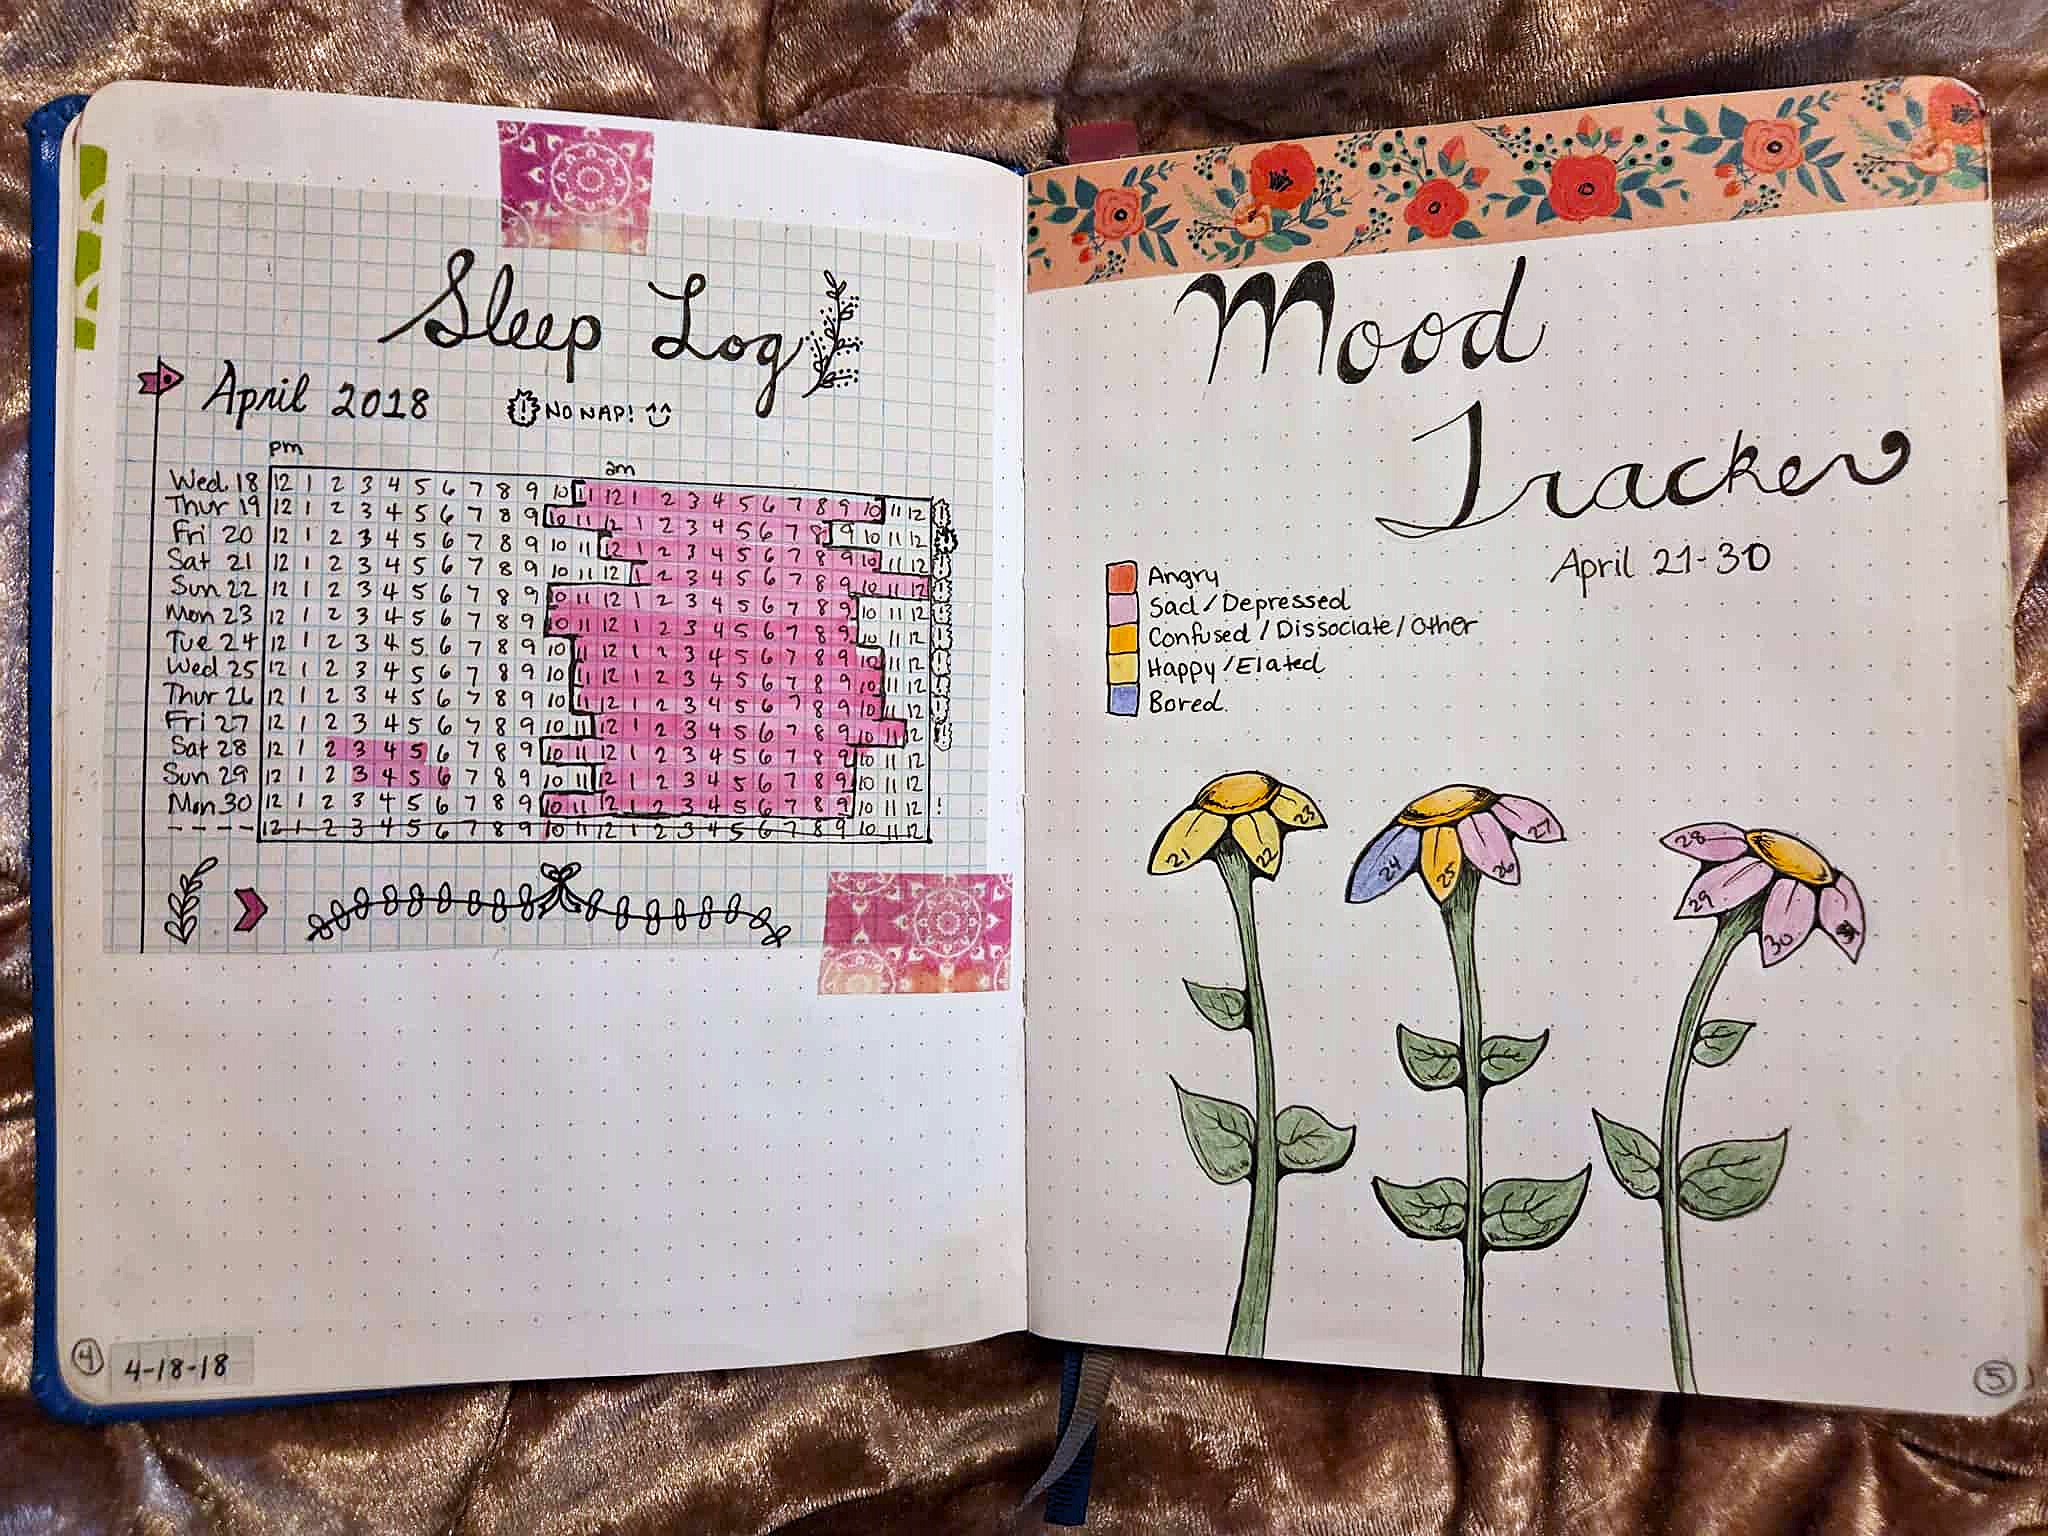 Sleep Log
April 2018
! NO NAP!
pm
am
Wed 18 12 1 2 3 4 5 6 7 8 9 10 11 12 1 2 3 4 5 6 7 8 9 10 11 12 !
Thur 19 12 1 2 3 4 5 6 7 8 9 10 11 12 1 2 3 4 5 6 7 8 9 10 11 12 !
Fri 20 12 1 2 3 4 5 6 7 8 9 10 11 12 1 2 3 4 5 6 7 8 9 10 11 12 !
Sat 21 12 1 2 3 4 5 6 7 8 9 10 11 12 1 2 3 4 5 6 7 8 9 10 11 12 !
Sun 22 12 1 2 3 4 5 6 7 8 9 10 11 12 1 2 3 4 5 6 7 8 9 10 11 12 !
Mon 23 12 1 2 3 4 5 6 7 8 9 10 11 12 1 2 3 4 5 6 7 8 9 10 11 12 !
Tue 24 12 1 2 3 4 5 6 7 8 9 10 11 12 1 2 3 4 5 6 7 8 9 10 11 12 !
Wed 25 12 1 2 3 4 5 6 7 8 9 10 11 12 1 2 3 4 5 6 7 8 9 10 11 12 !
Thur 26 12 1 2 3 4 5 6 7 8 9 10 11 12 1 2 3 4 5 6 7 8 9 10 11 12 !
Fri 27 12 1 2 3 4 5 6 7 8 9 10 11 12 1 2 3 4 5 6 7 8 9 10 11 12 !
Sat 28 12 1 2 3 4 5 6 7 8 9 10 11 12 1 2 3 4 5 6 7 8 9 10 11 12
Sun 29 12 1 2 3 4 5 6 7 8 9 10 11 12 1 2 3 4 5 6 7 8 9 10 11 12
Mon 30 12 1 2 3 4 5 6 7 8 9 10 11 12 1 2 3 4 5 6 7 8 9 10 11 12 !
---- 12 1 2 3 4 5 6 7 8 9 10 11 12 1 2 3 4 5 6 7 8 9 10 11 12
4
4-18-18
Mood
Tracker
April 21-30
Angry
Sad/Depressed
Confused/Dissociate/Other
Happy/Elated
Bored.
21 22 23
24 25 26 27
28 29 30
5